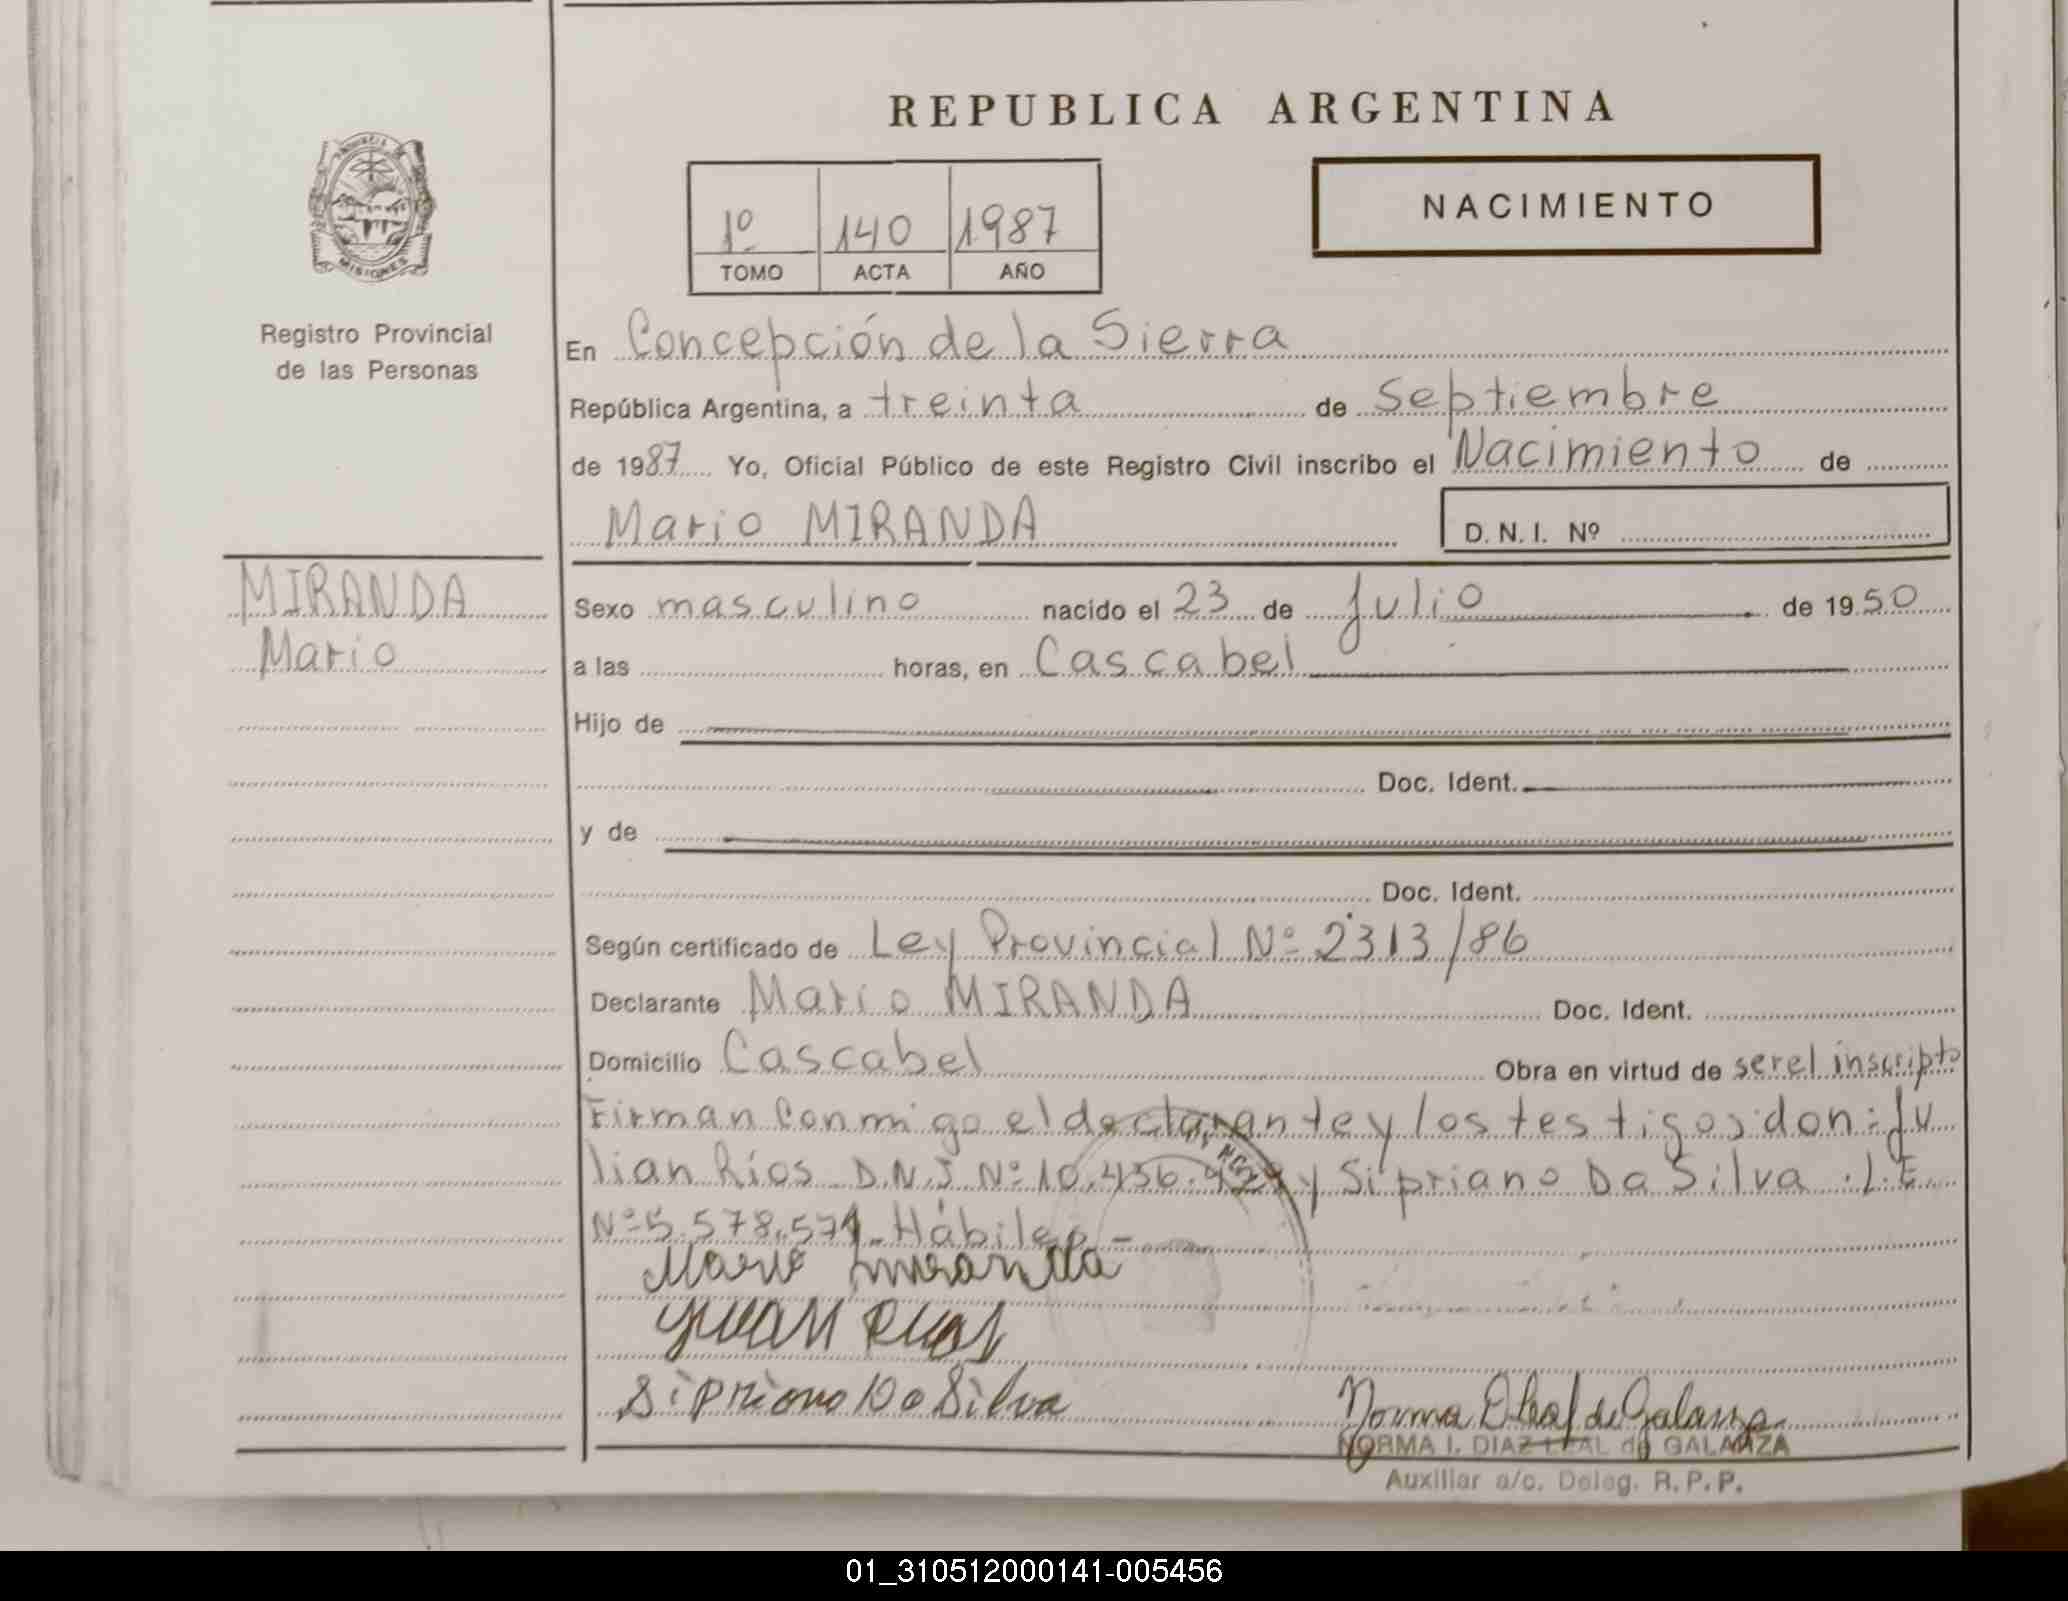 REPUBLICA ARGENTINA
NACIMIENTO
1º 140 1987
TOMO ACTA AÑO
PROVINCIA DE
MISIONES
Registro Provincial
de las Personas
En Concepción de la Sierra
República Argentina, a treinta de Septiembre
de 1987 Yo, Oficial Público de este Registro Civil inscribo el Nacimiento de
Mario MIRANDA D. N. I. Nº
MIRANDA
Mario
Sexo masculino nacido el 23 de Julio de 1950
a las horas, en Cascabel
Hijo de
Doc. Ident.
y de
Doc. Ident.
Según certificado de Ley Provincial Nº 2313/86
Declarante Mario MIRANDA Doc. Ident.
Domicilio Cascabel Obra en virtud de ser el inscripto
Firman conmigo el declarante y los testigos don: Ju
lian Ríos D.N.I Nº 10.456. y Sipriano Da Silva .L.E
Nº 5.578.571. Hábiles -
Mario Miranda
Juan Rios
Sipriano Da Silva
Norma D Leal de Galarza
NORMA I. DIAZ LEAL de GALARZA
Auxiliar a/c. Deleg. R. P. P.
01_310512000141-005456